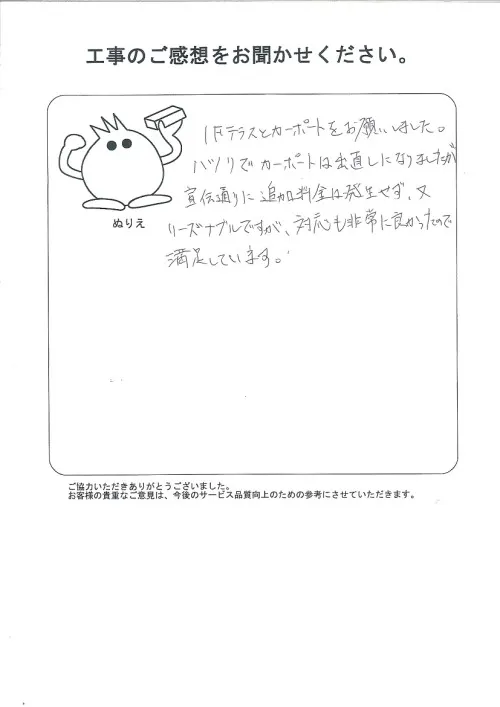 工事のご感想をお聞かせください。
1Fテラスとカーポートをお願いしました。
ハツリでカーポートは出直しになりましたが
宣伝通りに追加料金は発生せず、又
リーズナブルですが、対応も非常に良かったので
満足しています。
ぬりえ
ご協力いただきありがとうございました。
お客様の貴重なご意見は、今後のサービス品質向上のための参考にさせていただきます。